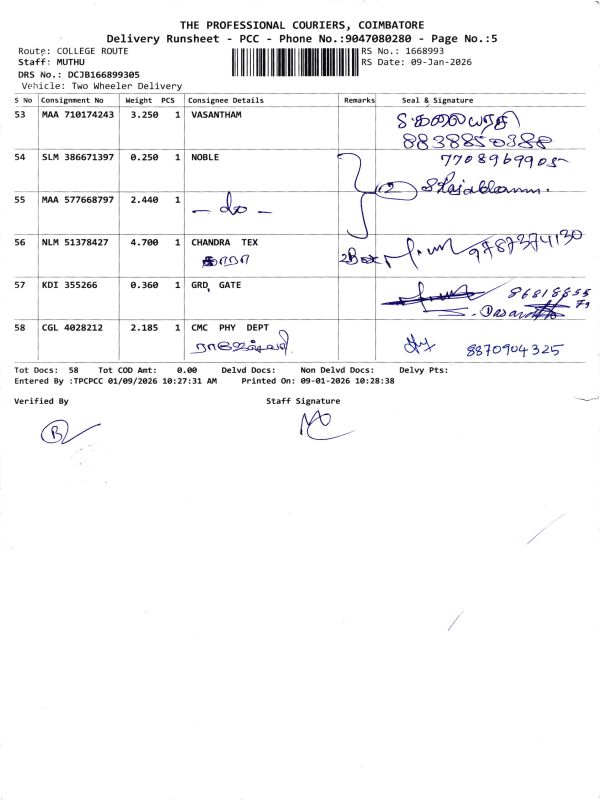 THE PROFESSIONAL COURIERS, COIMBATORE
Delivery Runsheet - PCC - Phone No.:9047080280 - Page No.:5
Route: COLLEGE ROUTE RS No.: 1668993
Staff: MUTHU RS Date: 09-Jan-2026
DRS No.: DCJB166899305
Vehicle: Two Wheeler Delivery
S No Consignment No Weight PCS Consignee Details Remarks Seal & Signature
53 MAA 710174243 3.250 1 VASANTHAM
8838850388
54 SLM 386671397 0.250 1 NOBLE 7708969905
2
55 MAA 577668797 2.440 1 - do -
56 NLM 51378427 4.700 1 CHANDRA TEX 2Box 9787374130
57 KDI 355266 0.360 1 GRD GATE
58 CGL 4028212 2.185 1 CMC PHY DEPT 8870904325
Tot Docs: 58 Tot COD Amt: 0.00 Delvd Docs: Non Delvd Docs: Delvy Pts:
Entered By :TPCPCC 01/09/2026 10:27:31 AM Printed On: 09-01-2026 10:28:38
Verified By Staff Signature
B